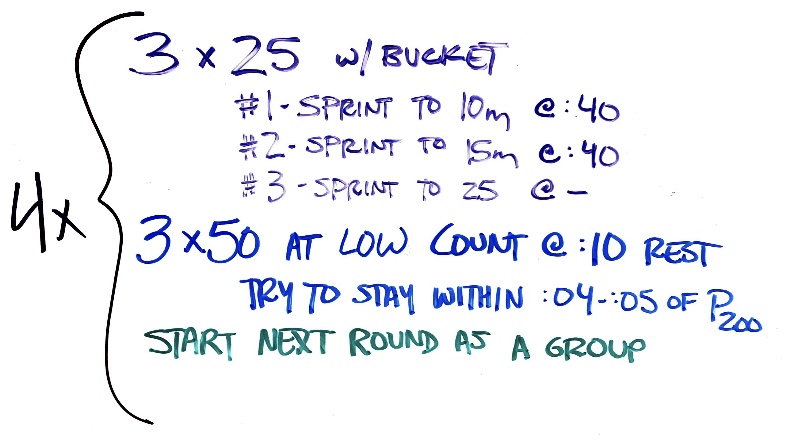 4x
3 x 25 W/ BUCKET
#1 - SPRINT TO 10m @ :40
#2 - SPRINT TO 15m @ :40
#3 - SPRINT TO 25 @ —
3 x 50 AT LOW COUNT @ :10 REST
TRY TO STAY WITHIN :04-:05 OF P200
START NEXT ROUND AS A GROUP